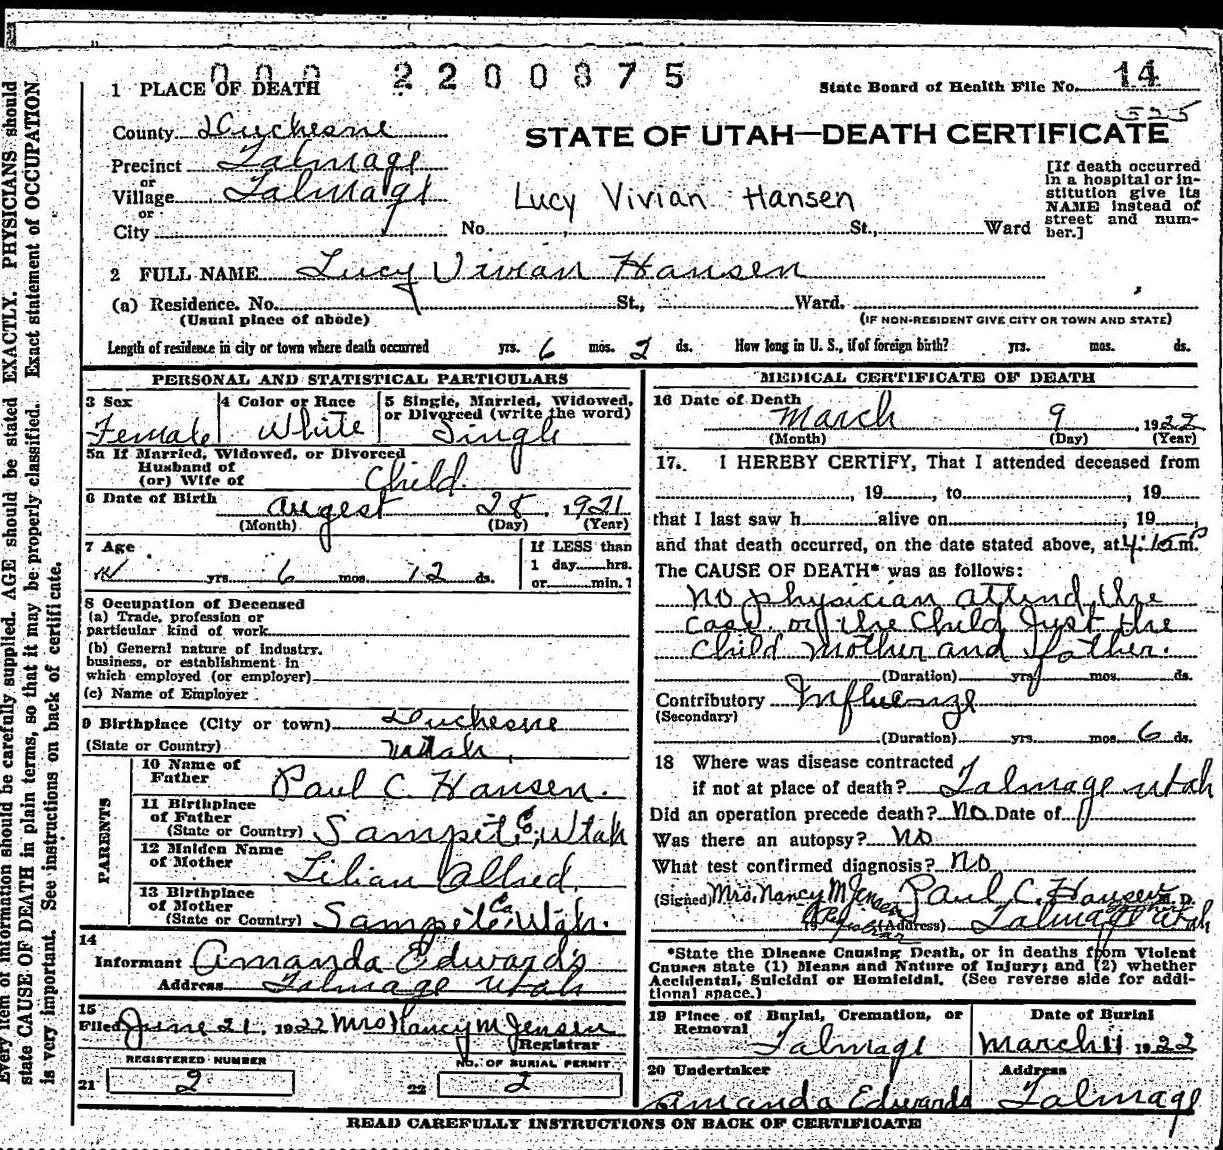 000 2200875
1 PLACE OF DEATH
State Board of Health File No. 14
525
County Duchesne
STATE OF UTAH—DEATH CERTIFICATE
Precinct Talmage
or
Village Talmage
or
City
Lucy Vivian Hansen
No. St., Ward
[If death occurred
in a hospital or in-
stitution give its
NAME instead of
street and num-
ber.]
2 FULL NAME Lucy Vivian Hansen
(a) Residence. No. St., Ward.
(Usual place of abode)
(IF NON-RESIDENT GIVE CITY OR TOWN AND STATE)
Length of residence in city or town where death occurred yrs. 6 mos. 2 ds. How long in U. S., if of foreign birth? yrs. mos. ds.
PERSONAL AND STATISTICAL PARTICULARS
3 Sex
Female
4 Color or Race
White
5 Single, Married, Widowed,
or Divorced (write the word)
Single
5a If Married, Widowed, or Divorced
Husband of
(or) Wife of
Child.
6 Date of Birth
augest 28, 1921
(Month) (Day) (Year)
7 Age
yrs. 6 mos. 12 ds.
If LESS than
1 day hrs.
or min.?
8 Occupation of Deceased
(a) Trade, profession or
particular kind of work
(b) General nature of industry,
business, or establishment in
which employed (or employer)
(c) Name of Employer
9 Birthplace (City or town) Duchesne
(State or Country) Utah,
PARENTS
10 Name of
Father
Paul C. Hansen.
11 Birthplace
of Father
(State or Country) Sampete Co, Utah
12 Maiden Name
of Mother
Lilian Allred.
13 Birthplace
of Mother
(State or Country) Sampete Co, Utah.
14
Informant Amanda Edwards
Address Talmage Utah
15
Filed June 21, 1922 Mrs Nancy M Jensen
Registrar
REGISTERED NUMBER
21 2
NO. OF BURIAL PERMIT
22 2
MEDICAL CERTIFICATE OF DEATH
16 Date of Death
March 9, 1922
(Month) (Day) (Year)
17. I HEREBY CERTIFY, That I attended deceased from
, 19 , to , 19
that I last saw h alive on , 19
and that death occurred, on the date stated above, at 4:15 P m.
The CAUSE OF DEATH* was as follows:
no physician attend the
case of the Child Just the
Child Mother and father.
(Duration) yrs. mos. ds.
Contributory Influenze
(Secondary)
(Duration) yrs. mos. 6 ds.
18 Where was disease contracted
if not at place of death? Talmage Utah
Did an operation precede death? no Date of
Was there an autopsy? no
What test confirmed diagnosis? no
(Signed) Mrs. Nancy M Jensen Paul C. Hansen M. D.
Registrar
19 (Address) Talmage Utah
*State the Disease Causing Death, or in deaths from Violent
Causes state (1) Means and Nature of Injury; and (2) whether
Accidental, Suicidal or Homicidal. (See reverse side for addi-
tional space.)
19 Place of Burial, Cremation, or
Removal
Talmage
Date of Burial
March 11 1922
20 Undertaker
Amanda Edwards
Address
Talmage
READ CAREFULLY INSTRUCTIONS ON BACK OF CERTIFICATE
Every item of information should be carefully supplied. AGE should be stated EXACTLY. PHYSICIANS should
state CAUSE OF DEATH in plain terms, so that it may be properly classified. Exact statement of OCCUPATION
is very important. See instructions on back of certificate.